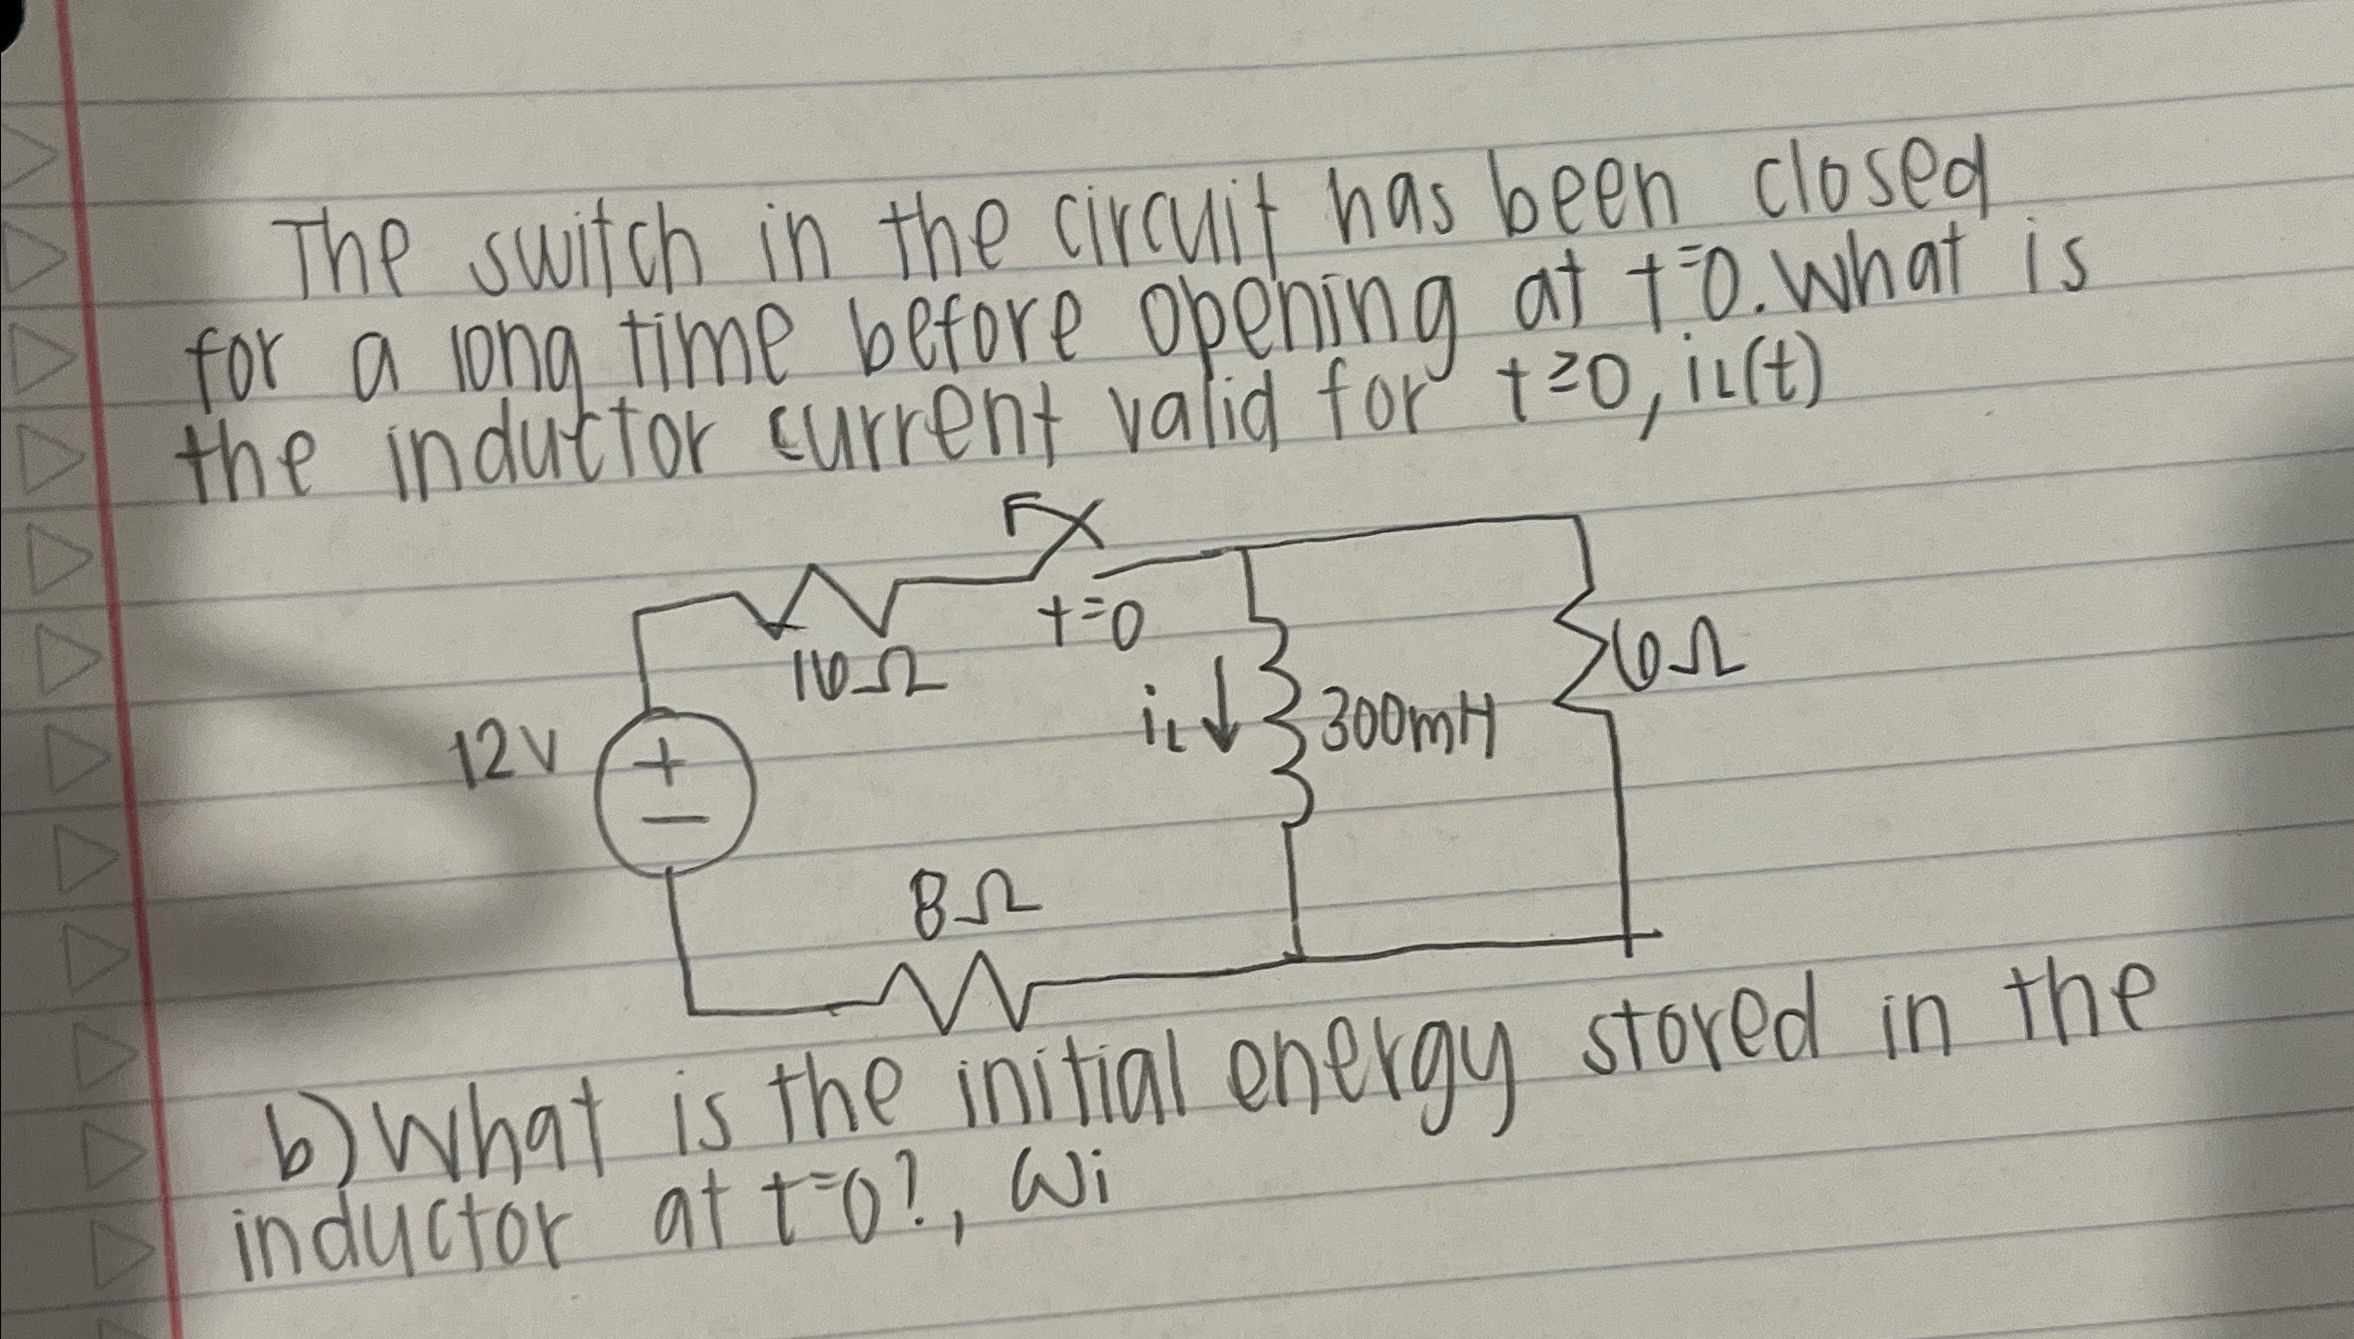 The switch in the circuit has been closed
for a long time before opening at t=0. What is
the inductor current valid for t≥0, iL(t)
t=0
16Ω
6Ω
12V
+
−
iL↓
300mH
8Ω
b) What is the initial energy stored in the
inductor at t=0?, Wi